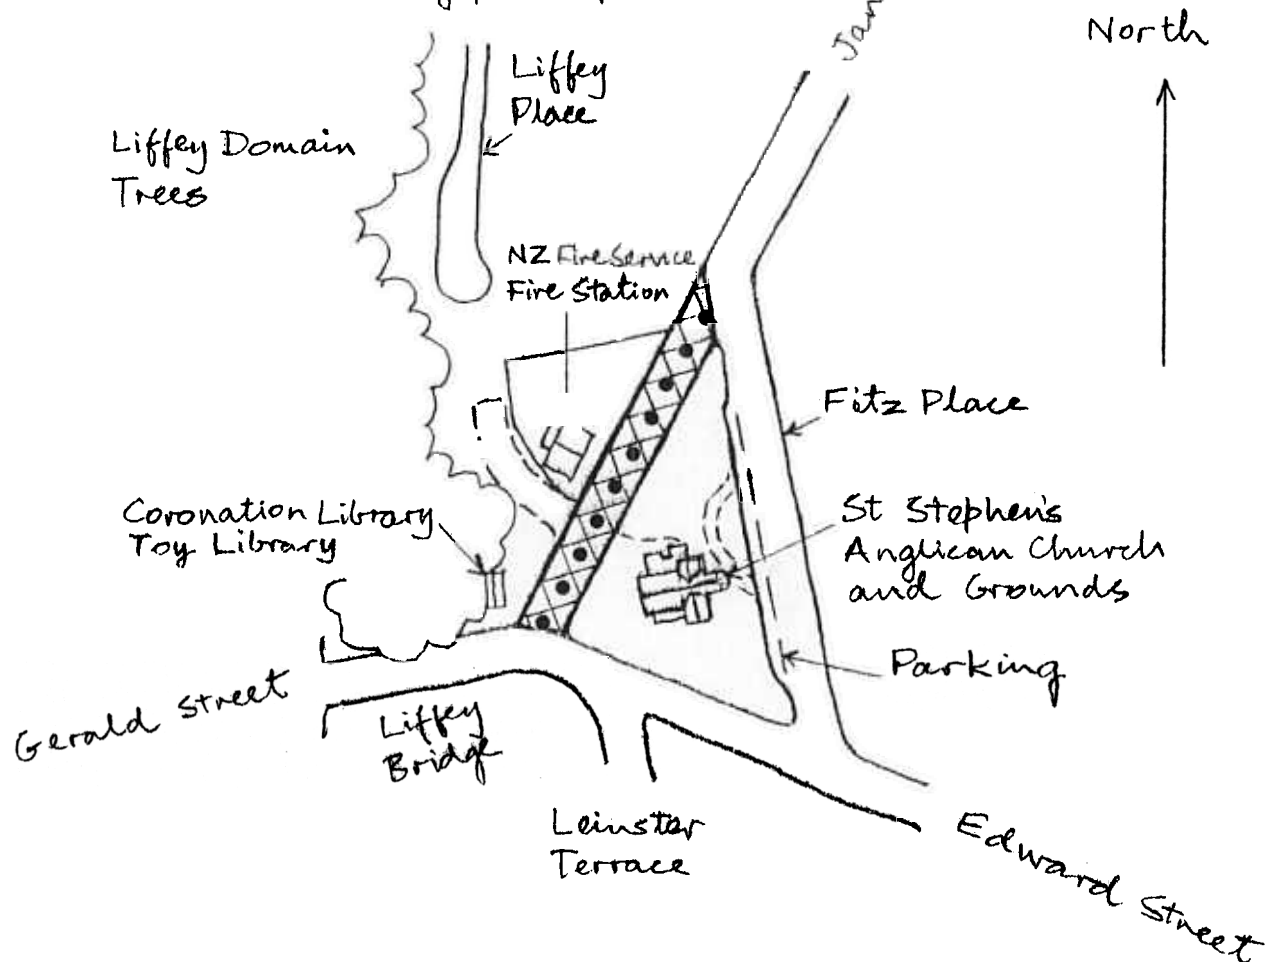 North
Liffey
Place
Liffey Domain
Trees
NZ Fire Service
Fire Station
Fitz Place
Coronation Library
Toy Library
St Stephen's
Anglican Church
and Grounds
Parking
Gerald Street
Liffey
Bridge
Leinster
Terrace
Edward Street